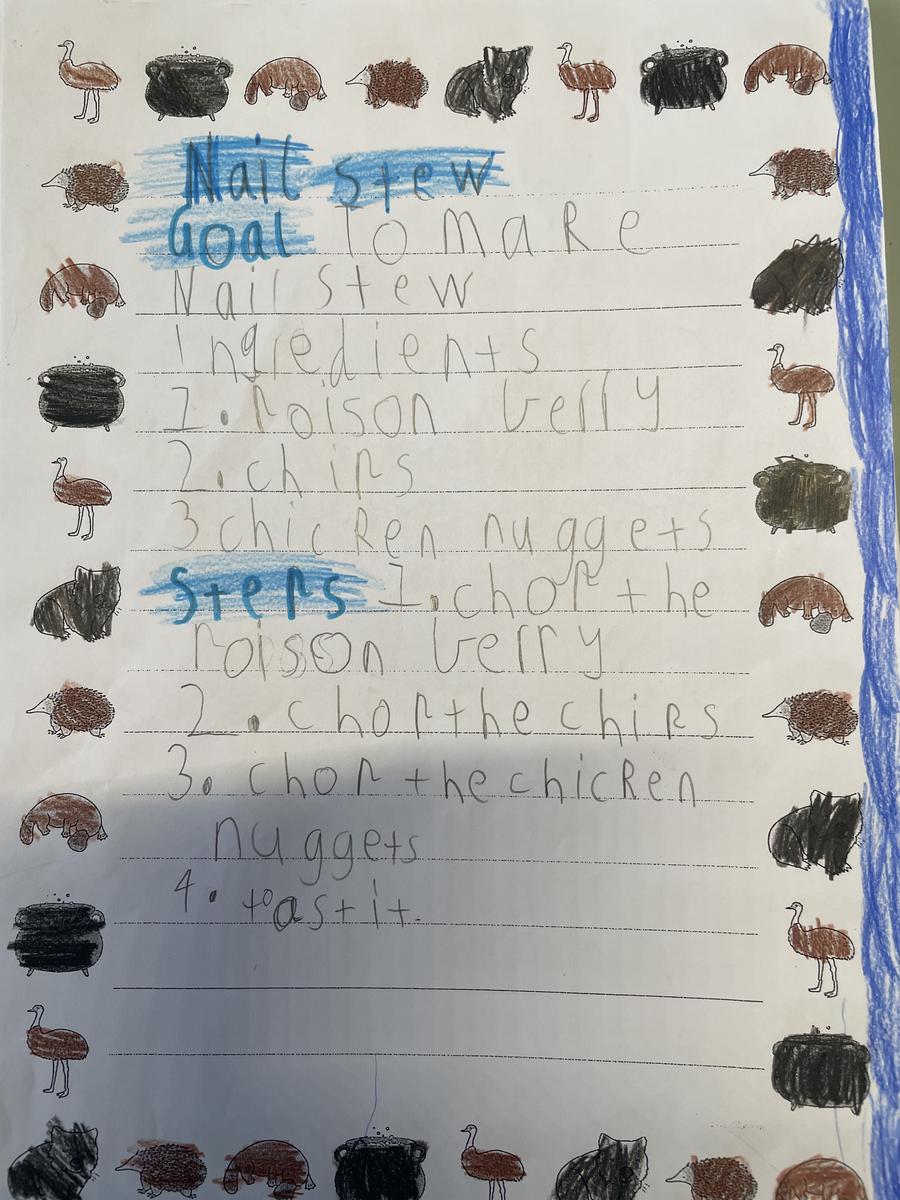 Nail stew
Goal To make
Nail stew
Ingredients
1. Poison berry
2. chips
3 chicken nuggets
Steps 1. chop the
Poison berry
2. chop the chips
3. chop the chicken
nuggets
4. toast it.